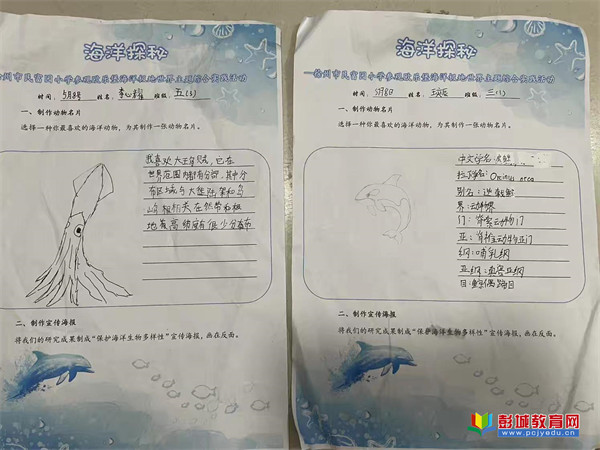 海洋探秘
徐州市民富园小学参观欧乐堡海洋极地世界主题综合实践活动
时间：5月8号 姓名：李心耀 班级：五(5)
一、制作动物名片
选择一种你最喜欢的海洋动物，为其制作一张动物名片。
我喜欢大王乌贼，它在
世界范围内都有分部，其中分
布区域与大陆
在热带和极
地最高纬度有很少分布
二、制作宣传海报
将我们的研究成果制成“保护海洋生物多样性”宣传海报，画在反面。
海洋探秘
徐州市民富园小学参观欧乐堡海洋极地世界主题综合实践活动
时间：5月8日 姓名： 班级：三(1)
一、制作动物名片
选择一种你最喜欢的海洋动物，为其制作一张动物名片。
中文学名：
拉丁学名：Orcinus orca
别名：逆戟鲸
界：动物界
门：脊索动物门
亚：脊椎动物亚门
纲：哺乳纲
亚纲：真兽亚纲
目：鲸偶蹄目
二、制作宣传海报
将我们的研究成果制成“保护海洋生物多样性”宣传海报，画在反面。
彭城教育网
www.pcjyedu.cn